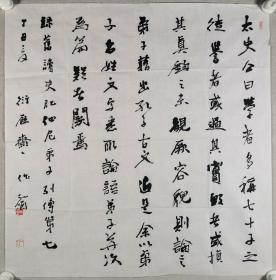 太史公曰學者多稱七十子之
徒譽者或過其實毀者或損
其真鈞之未覩厥容貌則論言
弟子籍出孔子古文近是余以弟
子名姓文字悉取論語弟子并次
為篇疑者闕焉
錄舊讀史記仲尼弟子列傳第七
丁丑夏